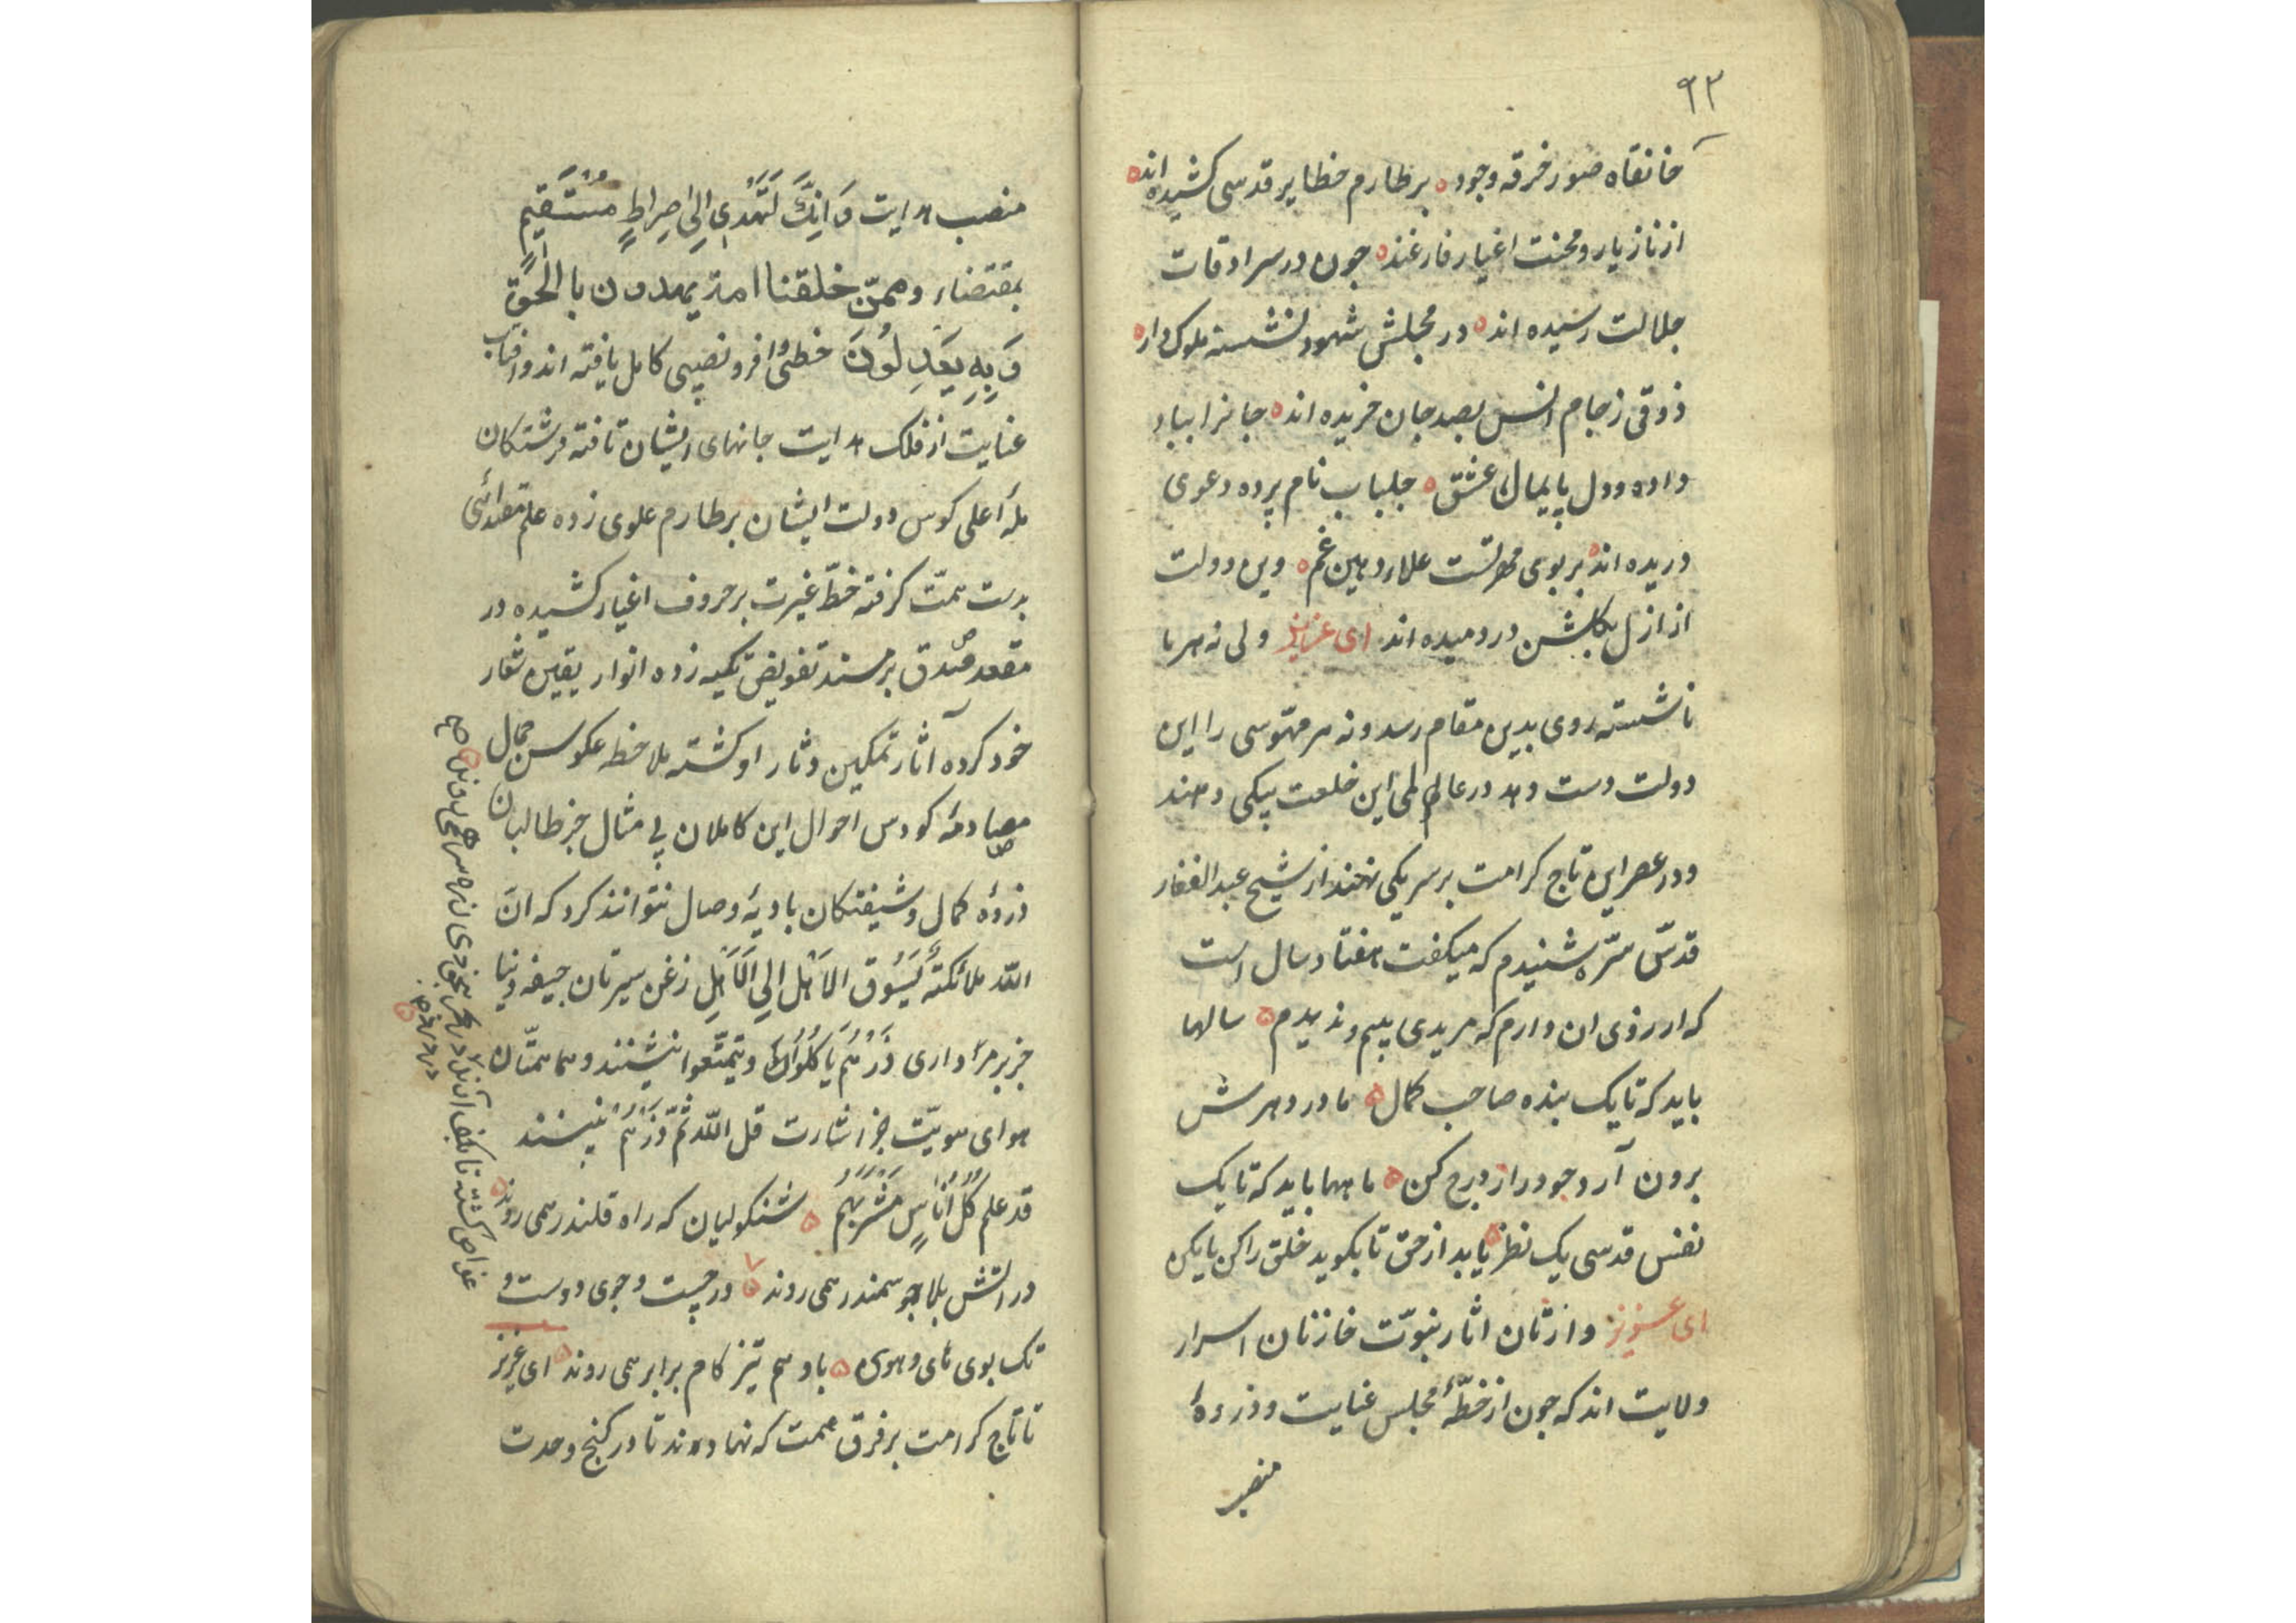 ۹۲
خانقاه صور خرقه وجود ه بر طارم حظایر قدسی کشیده اند ه
از ناز یار و محنت اغیار فارغند ه چون در سرادقات
جلالت رسیده اند ه در مجلس شهود نشسته ملوک وار ه
ذوقی ز جام انس بصد جان خریده اند ه جانرا بباد
داده و دل پایمال عشق ه جلباب نام پرده دعوی
دریده اند ه بر بوی همین غم ه وین دولت
از ازل بگلشن در دمیده اند ای عزیز ولی نه هر نا
ناشسته روی بدین مقام رسد و نه هر مهوسی را این
دولت دست دهد در عالمی این خلعت بیکی دهند
و در عصر این تاج کرامت بر سر یکی نهند از شیخ عبد الغفار
قدس سره شنیدم که میکفت هفتاد سال است
که ارزوی ان دارم که مریدی بینم و ندیدم ه سالها
باید که تا یک بنده صاحب کمال ه مادر دهرش
برون آرد وجود از درج کن ه ماهها باید که تا یک
نفس قدسی یک نظر ه یابد از حق تا بکوید خلق را کن یا مکن
ای عزیز وارثان اثار نبوت خازنان اسرار
ولایت اند که چون از خطهٔ مجلس عنایت و ذروهٔ
منصب
منصب هدایت وَاِنَّكَ لَتَهْدِی اِلیٰ صِراطٍ مُسْتَقیمٍ
بمقتضاء وممن خلقنا امة یهدون بالحق
وَ بِهِ یَعدِلُونَ حظی وافر و نصیبی کامل یافته اند و افتاب
عنایت از فلک هدایت جانهای ایشان تافته فرشتکان
ملأ اعلی کوس دولت ایشان بر طارم علوی زده علم مقتدائی
بدست همت کرفته خط غیرت بر حروف اغیار کشیده در
مقعد صدق بر مسند تفویض تکیه زده انوار یقین شعار
خود کرده آثار تمکین دثار او کشته ملاحظه عکوس جمال
مصادمهٔ کودس احوال این کاملان بی مثال جز طالبان
ذروهٔ کمال و شیفتکان بادیهٔ وصال نتوانند کرد که ان
الله ملائکته یَسُوق الاَهل الی الاَهلِ زغن سیرتان جیفه دنیا
جز بر مرداری ذَرْهُم یَاکُلُوا و یتمتعوا ننشینند و هما همتان
هوای هویت جز اشارت قل الله ثم ذَرْهُم نبینند
قد علم کُلُّ اُناسٍ مَشْرَبَهُم ه شنکولیان که راه قلندر همی روند ه
در اتش بلا چو سمندر همی روند ه در جست و جوی دوست و
تک بوی های و هوی ه باد هم تیز کام برابر همی روند ه ای عزیز
تا تاج کرامت بر فرق همت که نهادند تا در کنج وحدت